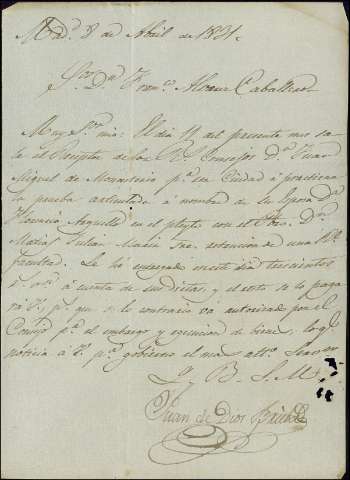 Mad.d 8 de Abril de 1831.
Sor. Dn. Fran.co Alvarez Caballero
Muy S.or mio: El dia 11 del presente mes sa-
le el Receptor de los Rs. Consejos D.n Juan
Miguel de Monasterio p.a esa Ciudad á practicar
la prueba articulada á nombre de su Esposa D.a
Arguelle en el pleyto con el Pbro. D.n
Matias Julian sre. retencion de una Rl.
facultad. Le he entregado en este dia trescientos
r.s v.n á cuenta de sus dietas, y el resto se lo paga
rá V. p.s que de lo contrario vá autorizado por el
Consejo p.a el embargo y egecucion de bienes, lo q.e
noticia á V. p.a gobierno el mas att.o Servor
Q. B. S. M.
Juan de Dios